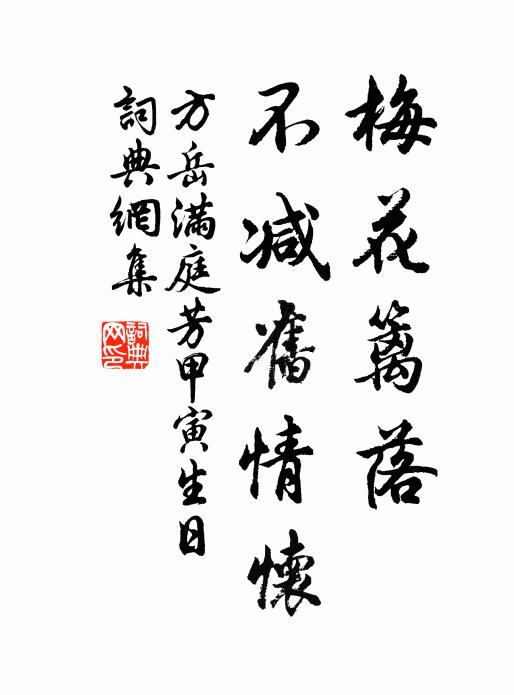 梅花篱落
不减舊情懷
方岳满庭芳甲寅生日
詞典網集
詞典网印